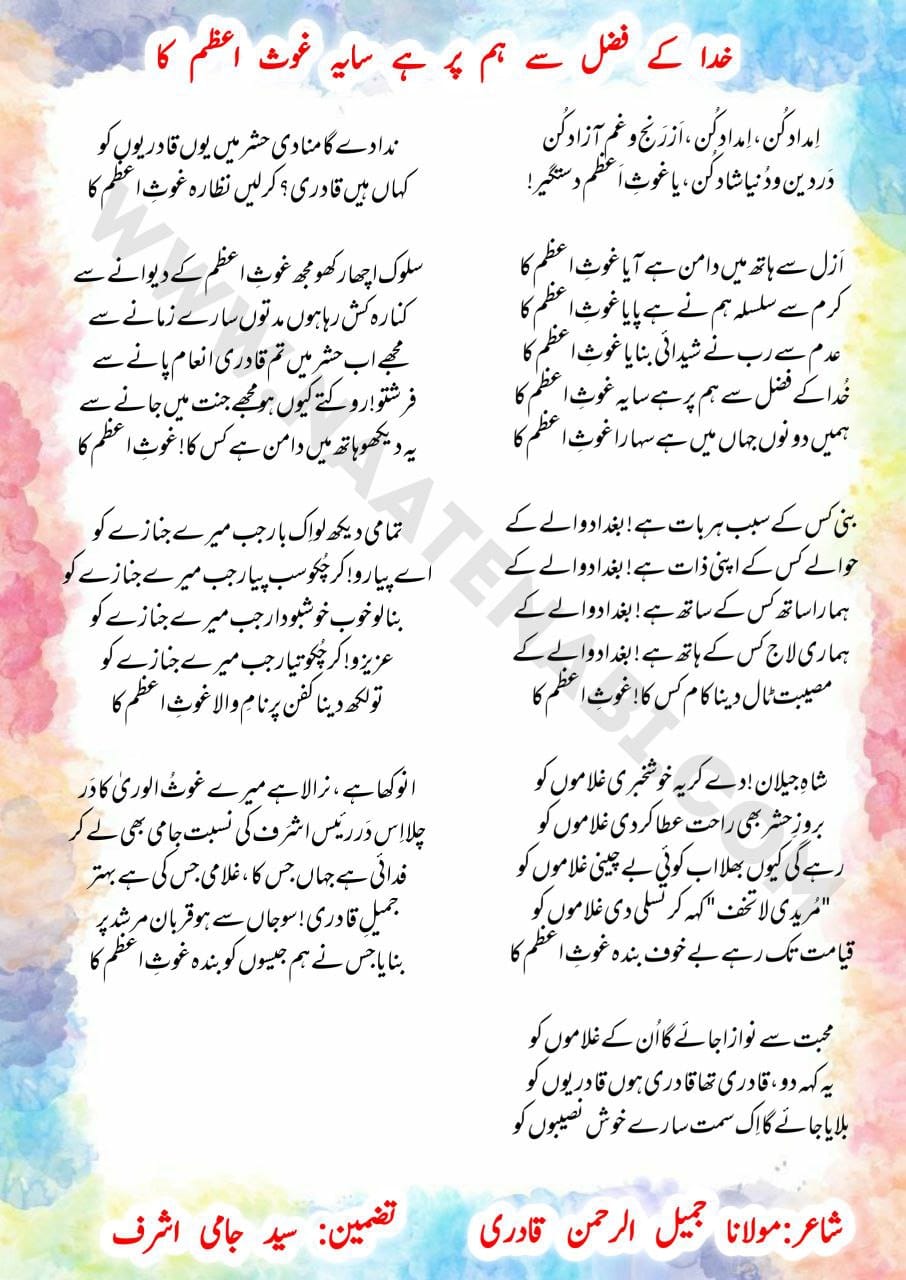 خدا کے فضل سے ہم پر ہے سایہ غوث اعظم کا
اِمداد کُن ، اِمداد کُن ، اَز رَنج و غم آزاد کُن
دَر دین و دُنیا شاد کُن ، یا غوثِ اَعظم دستگیر!
اَزل سے ہاتھ میں دامن ہے آیا غوثِ اعظم کا
کرم سے سلسلہ ہم نے ہے پایا غوثِ اعظم کا
عدم سے رب نے شیدائی بنایا غوثِ اعظم کا
خُدا کے فضل سے ہم پر ہے سایہ غوثِ اعظم کا
ہمیں دونوں جہاں میں ہے سہارا غوثِ اعظم کا
بنی کس کے سبب ہر بات ہے! بغداد والے کے
حوالے کس کے اپنی ذات ہے! بغداد والے کے
ہمارا ساتھ کس کے ساتھ ہے! بغداد والے کے
ہماری لاج کس کے ہاتھ ہے! بغداد والے کے
مصیبت ٹال دینا کام کس کا! غوثِ اعظم کا
شاہِ جیلان! دے کر یہ خوشخبری غلاموں کو
بروزِ حشر بھی راحت عطا کر دی غلاموں کو
رہے گی کیوں بھلا اب کوئی بے چینی غلاموں کو
"مُریدی لا تخف" کہہ کر تسلی دی غلاموں کو
قیامت تک رہے بے خوف بندہ غوثِ اعظم کا
محبت سے نوازا جائے گا اُن کے غلاموں کو
یہ کہہ دو، قادری تھا قادری ہوں قادریوں کو
بلایا جائے گا اِک سمت سارے خوش نصیبوں کو
ندا دے گا منادی حشر میں یوں قادریوں کو
کہاں ہیں قادری؟ کر لیں نظارہ غوثِ اعظم کا
سلوک اچھا رکھو مجھ غوثِ اعظم کے دیوانے سے
کنارہ کش رہا ہوں مدتوں سارے زمانے سے
مجھے اب حشر میں تم قادری انعام پانے سے
فرشتو! روکتے کیوں ہو مجھے جنت میں جانے سے
یہ دیکھو ہاتھ میں دامن ہے کس کا! غوثِ اعظم کا
تمامی دیکھ لو اک بار جب میرے جنازے کو
اے پیارو! کر چُکو سب پیار جب میرے جنازے کو
بنا لو خوب خوشبودار جب میرے جنازے کو
عزیزو! کر چُکو تیار جب میرے جنازے کو
تو لکھ دینا کفن پر نامِ والا غوثِ اعظم کا
انوکھا ہے ، نرالا ہے میرے غوثُ الوریٰ کا دَر
چلا اِس دَر رئیس اشرف کی نسبت جامی بھی لے کر
فدائی ہے جہاں جس کا، غلامی جس کی ہے بہتر
جمیلِ قادری! سو جاں سے ہو قربان مرشد پر
بنایا جس نے ہم جیسوں کو بندہ غوثِ اعظم کا
شاعر: مولانا جمیل الرحمن قادری
تضمین: سید جامی اشرف
WWW.NAATENABI.COM